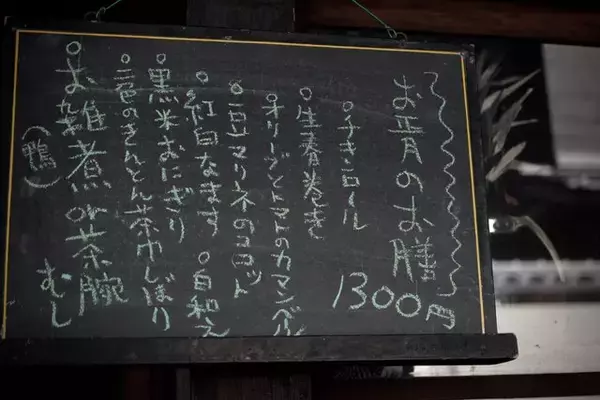 お正月のお膳
1300円
・チキンロール
・生春巻き
・オリーブとトマトのカマンベール
・豆マリネのコロット
・紅白なます ・白和え
・黒米おにぎり
・三色のきんとん茶巾しぼり
・お雑煮or茶腕むし
(鴨)